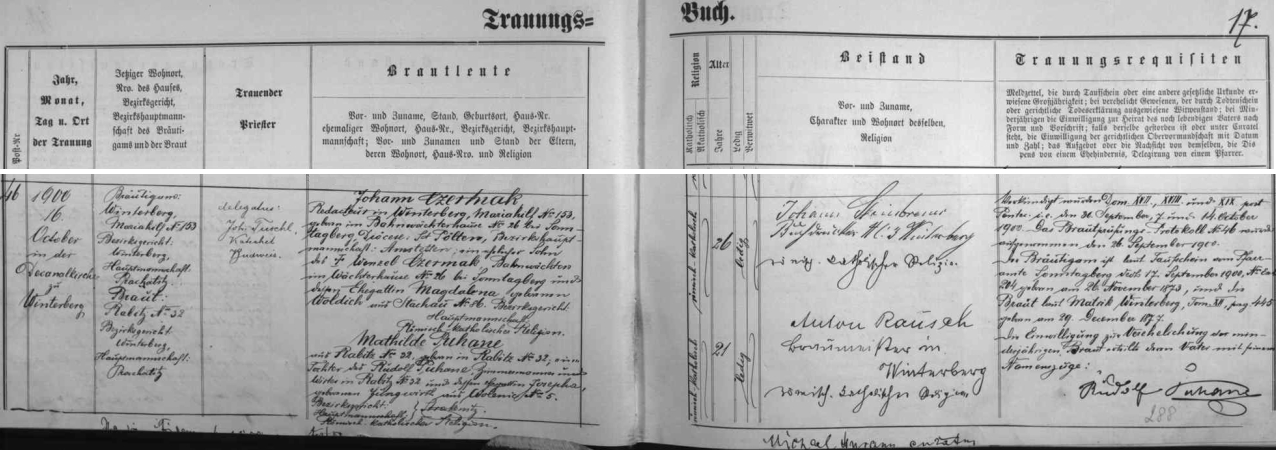 Trauungs=
Buch.
17.
Post-Nr
Jahr,
Monat,
Tag u. Ort
der Trauung
Jetziger Wohnort,
Nro. des Hauses,
Bezirksgericht,
Bezirkshauptmann-
schaft des Bräuti-
gams und der Braut
Trauender
Priester
Brautleute
Vor- und Zuname, Stand, Geburtsort, Haus-Nr.
ehemaliger Wohnort, Haus-Nr., Bezirksgericht, Bezirkshaupt-
mannschaft; Vor- und Zunamen und Stand der Eltern,
deren Wohnort, Haus-Nro. und Religion
Religion
Katholisch
Akatholisch
Alter
Jahre
Ledig
Verwitwet
Beistand
Vor- und Zuname,
Charakter und Wohnort desselben,
Religion
Trauungsrequisiten
Meldzettel, die durch Taufschein oder eine andere gesetzliche Urkunde er-
wiesene Großjährigkeit; bei verehelicht Gewesenen, der durch Todtenschein
oder gerichtliche Todeserklärung ausgewiesene Witwenstand; bei Min-
derjährigen die Einwilligung zur Heirat des noch lebendigen Vaters nach
Form und Vorschrift; falls derselbe gestorben ist oder unter Curatel
steht, die Einwilligung der gerichtlichen Obervormundschaft mit Datum
und Zahl; das Aufgebot oder die Nachsicht von demselben, die Dis
pens von einem Ehehindernis, Delegirung von einem Pfarrer.
46
1900
16.
October
in der
Decanalkirche
zu
Winterberg
Bräutigam:
Winterberg,
Mariahilf № 153
Bezirksgericht:
Winterberg,
Hauptmannschaft:
Prachatitz.
Braut:
Rabitz № 32
Bezirksgericht
Winterberg,
Hauptmannschaft:
Prachatitz
delegatus:
Joh.
Katechet
Budweis.
Johann Czermak
Redacteur in Winterberg, Mariahilf № 153,
geboren im Bahnwächterhause № 26 bei Sonn-
tagberg Diöcese St. Pölten, Bezirkshaupt-
mannschaft: Amstetten; ein ehelicher Sohn
des † Wenzel Czermak, Bahnwächters
im Wächterhause № 26 bei Sonntagberg und
dessen Ehegattin Magdalena geborenen
Woldich aus Stachau № 16. Bezirksgericht:
Hauptmannschaft.
Römisch-katholischer Religion.
Mathilde Puhane
aus Rabitz № 32, geboren in Rabitz № 32, eine
Tochter des Rudolf Puhane Zimmermannes und
in Rabitz № 32 und dessen Ehegattin Josepha,
geborenen Jungwirt aus № 5.
Bezirksgericht:
Hauptmannschaft: Prachatitz.
Römisch-katholischer Religion.
römisch-katholisch
26
ledig
römisch katholisch
21
ledig
Johann Steinbrener
Buchdrucker in Winterberg
röm. katholischer Religion
Anton Rausch
Braumeister in
Winterberg
römisch. katholischer Religion
Verkündigt wurden Dom. XVII, XVIII und XIX post
Pentec. i.e. den 30. September, 7. und 14. October
1900. Das Brautprüfungs-Protokoll № 46 wurde
aufgenommen den 26. September 1900.
Der Bräutigam ist laut Taufschein vom Pfarr-
amte Sonntagberg ddto 17. September 1900,
204, geboren am 26. November 1873, und die
Braut laut Matrik Winterberg, Tom. XII, pag 445
geboren am 29. December 1877.
Die Einwilligung zur Verehelichung der min-
derjährigen Braut erteilte deren Vater mit seinem
Namenszuge:
Rudolf Puhane
288